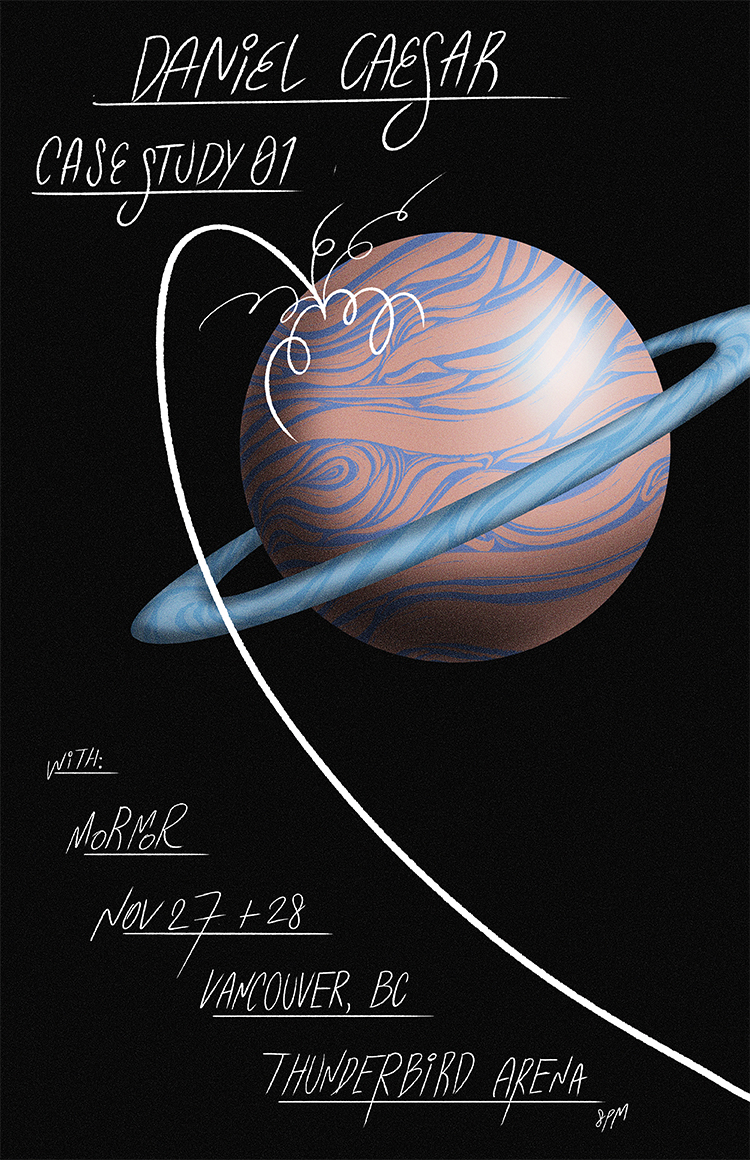 DANiEL CAESAR
CASE STUDY 01
WiTH:
MoRMoR
NOV 27 + 28
VANCOUVER, BC
THUNDERBiRD ARENA
8PM